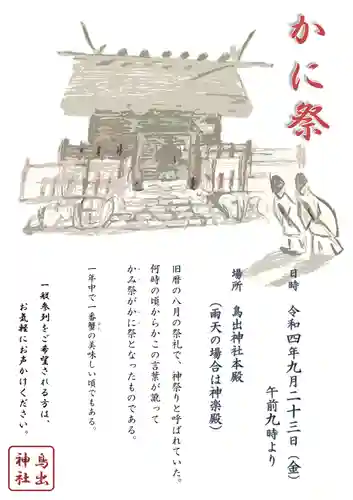 かに祭
日時　令和四年九月二十三日（金）
午前九時より
場所　鳥出神社本殿
（雨天の場合は神楽殿）
旧暦の八月の祭礼で、神祭りと呼ばれていた。
何時の頃からかこの言葉が訛って
かみ祭がかに祭となったものである。
一年中で一番蟹の美味しい頃でもある。
一般参列をご希望される方は、
お気軽にお声かけください。
鳥出
神社